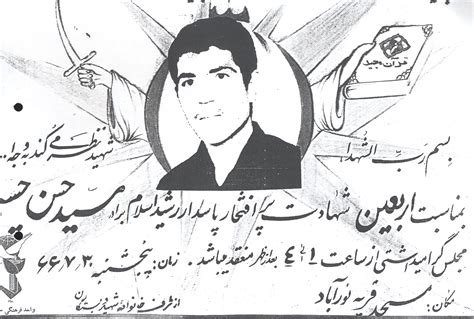 قرآن مجید
بسم رب الشهدا
شهید نظر می کند به وجه ا
بمناسبت اربعین شهادت پر افتخار پاسدار رشید اسلام برادر سید حسن
مجلس گرامیداشتی از ساعت ۱ الی ۴ بعدازظهر منعقد میباشد. زمان: پنجشنبه ۶۶،۷،۳۰
مکان: مسجد قریه نورآباد
از طرف خانواده شهید و بستگان
واحد فرهنگی